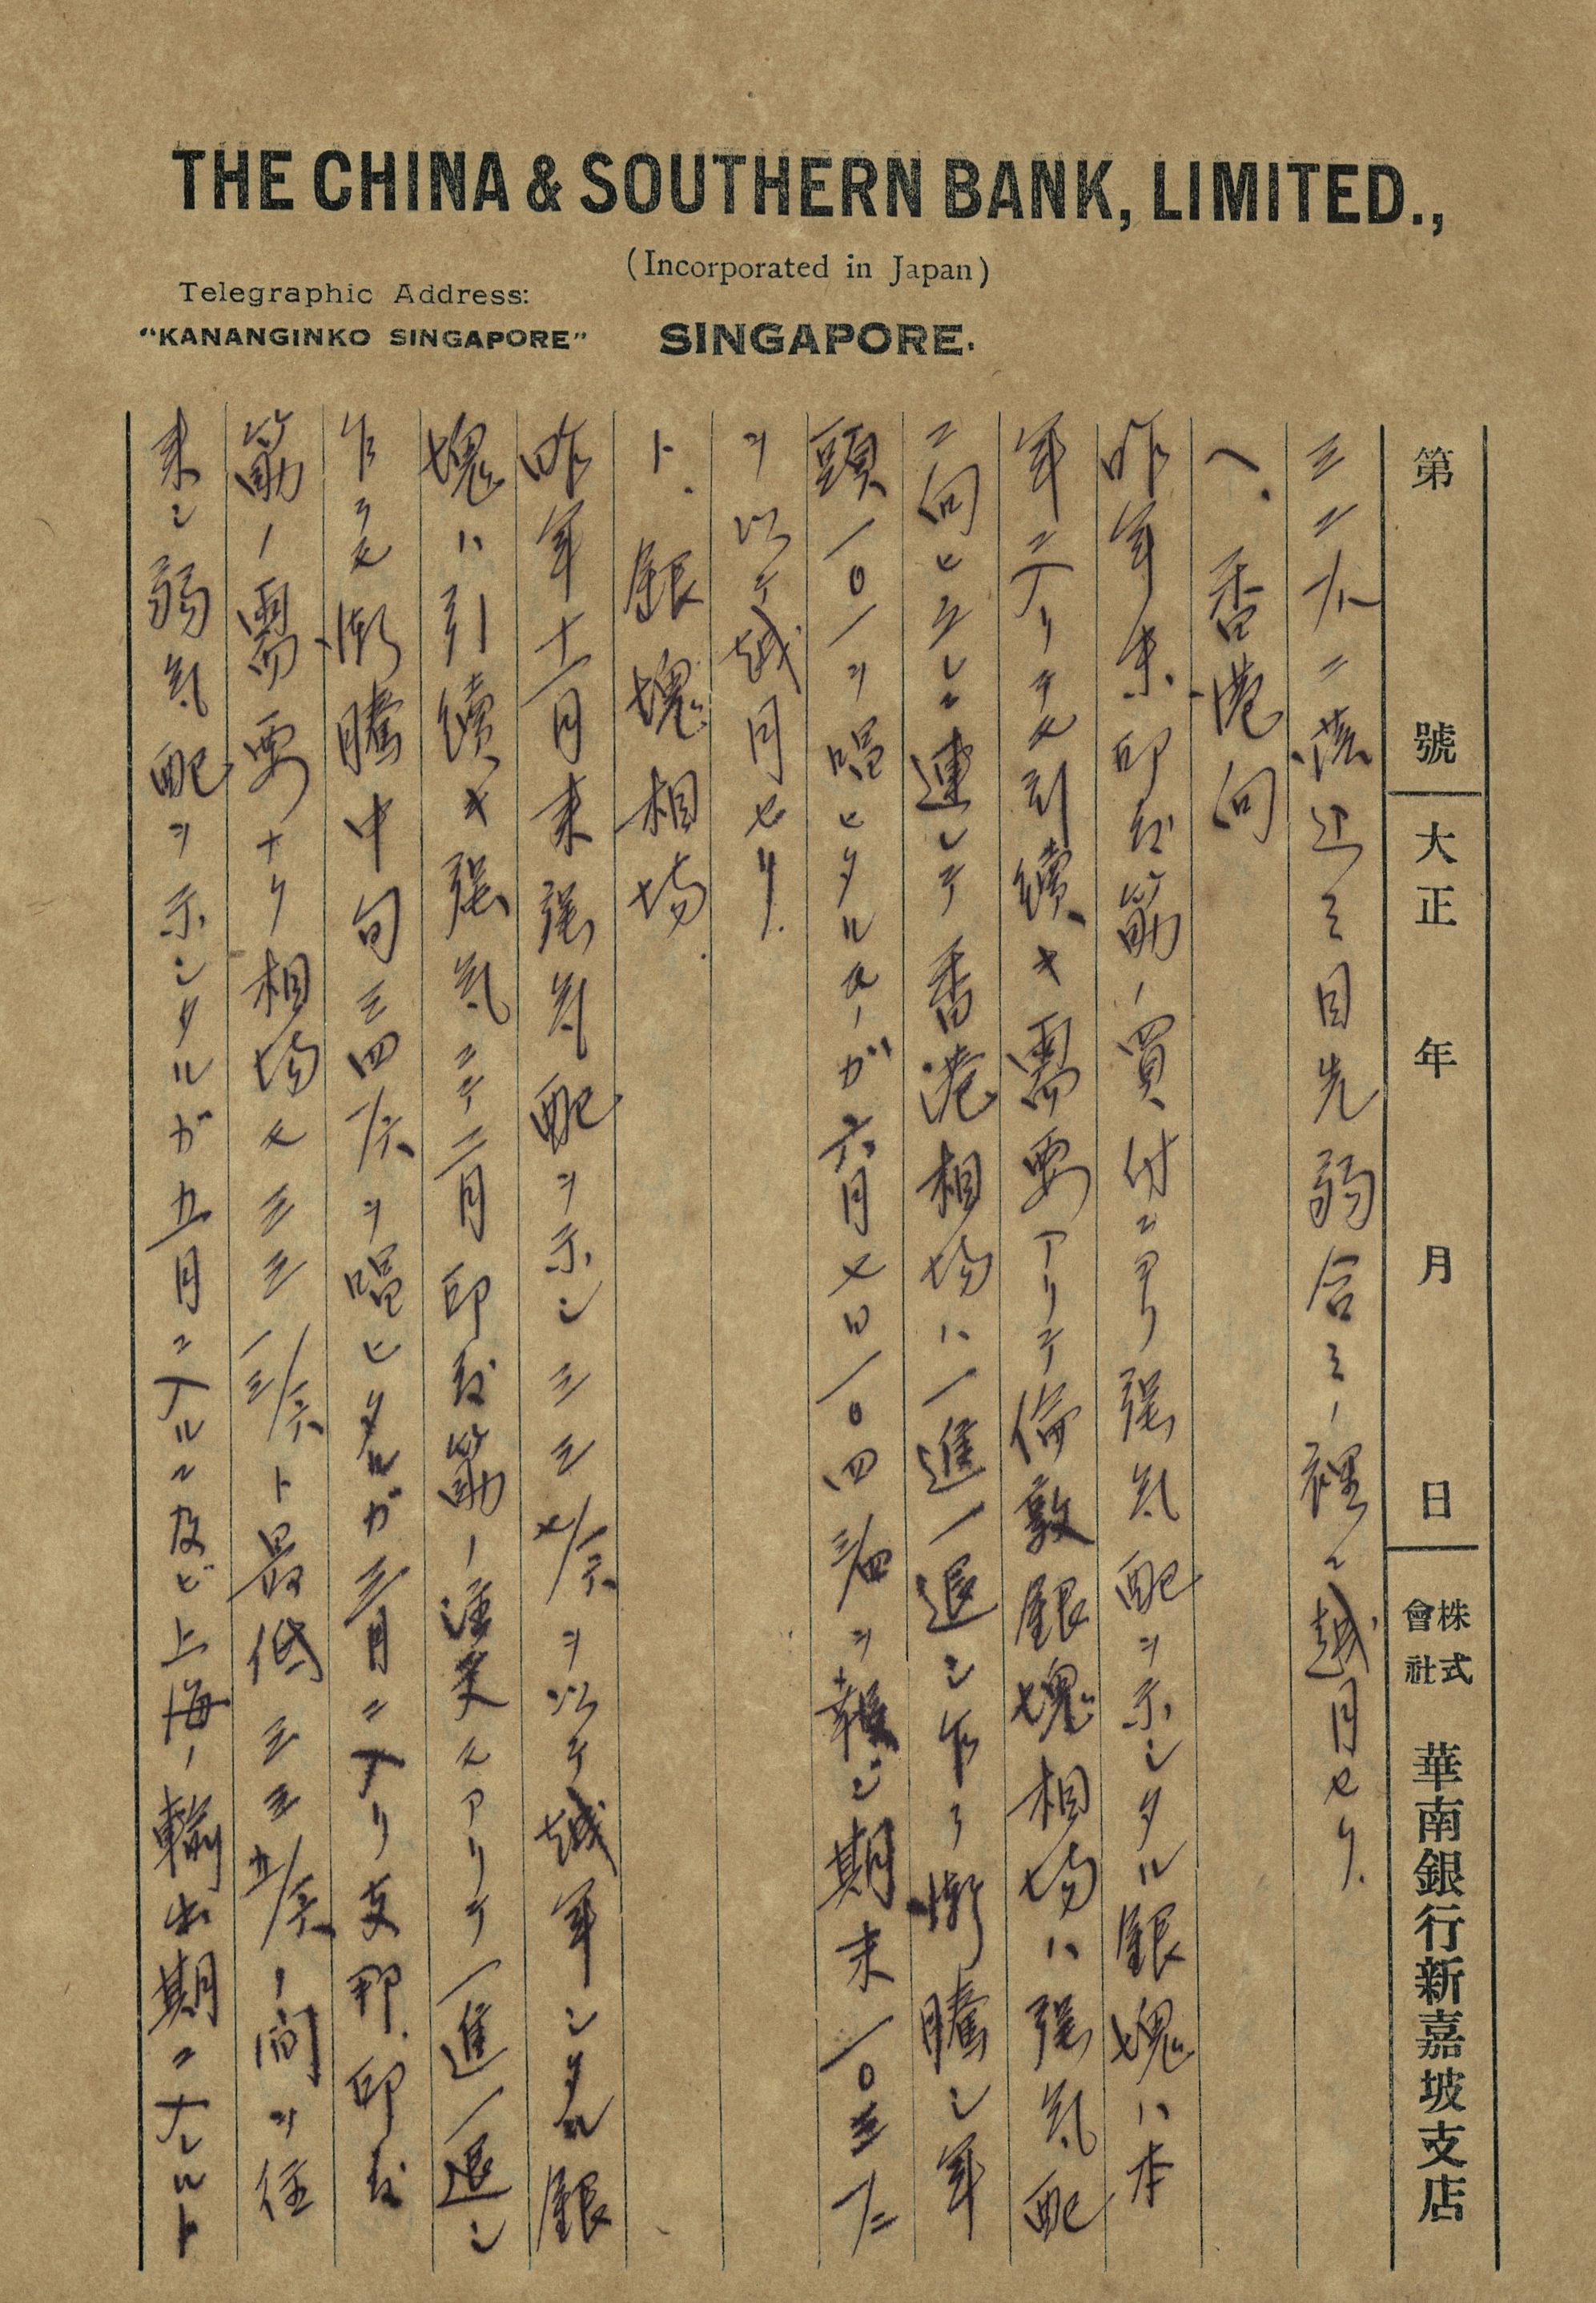 THE CHINA & SOUTHERN BANK, LIMITED.,
(Incorporated in Japan)
Telegraphic Address:
"KANANGINKO SINGAPORE"
SINGAPORE.
第 號 大正 年 月 日 株式會社 華南銀行新嘉坡支店
ニ落込ミ目先弱含ミノ裡ニ越月セリ.
ヘ. 香港向
昨年末印度筋ノ買付ニヨリ强気配ヲ示シタル銀塊ハ本
年ニ入リテモ引續キ需要アリテ倫敦銀塊相場ハ强気配
ニ向ヒ之レニ連レテ香港相場ハ一進一退シ乍ラ漸騰シ年
頭一〇一ヲ唱ヒタルモノガ六月七日一〇四 三/四ヲ報ジ期末一〇三 1/二
ヲ以テ越月セリ.
ト. 銀塊相場.
昨年十一月末强気配ヲ示シ三三 七/一六ヲ以テ越年シタル銀
塊ハ引續キ强気ニテ二月印度筋ノ注文モアリテ一進一退シ
乍ラモ漸騰中旬三四 1/一六ヲ唱ヒタルガ三月ニ入リ支那、印度
筋ノ需要ナリ相場モ三三 一三/一六ト最低三三 五/一六ノ間ヲ往
来シ弱気配ヲ示シタルガ五月ニ入ルニ及ビ上海ノ輸出期ニナルト